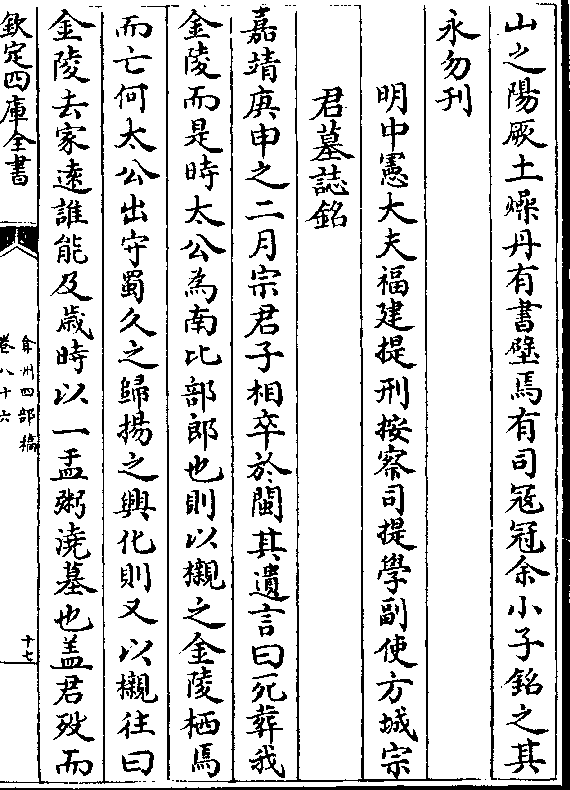 山之陽厥土燥丹有書壁焉有司冦冠余小子銘之其
永勿刊
明中憲大夫福建提刑按察司提學副使方城宗
君墓誌銘
嘉靖庚申之二月宗君子相卒於閩其遺言曰死葬我
金陵而是時太公為南比部郎也則以櫬之金陵栖焉
而亡何太公出守蜀久之歸揚之興化則又以櫬往曰
金陵去家遠誰能及歳時以一盂粥澆墓也盖君歿而
欽定四庫全書
弇州四部稿
卷八十六
十七